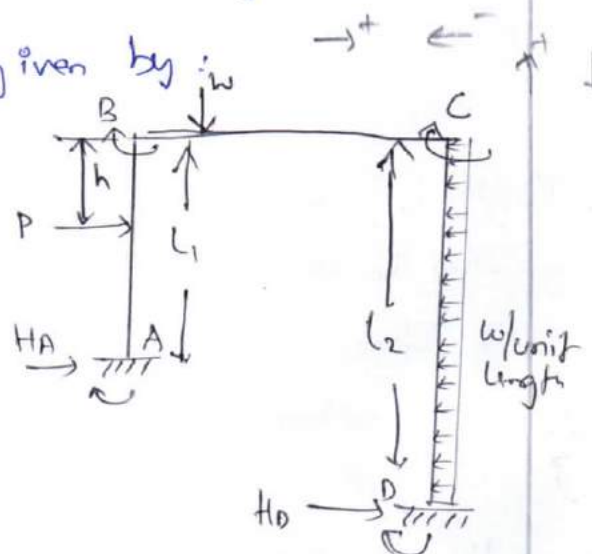 →+ ←- +
given by :
w
B C
h
P
L1
L2
HA A
w/unit
length
HD D